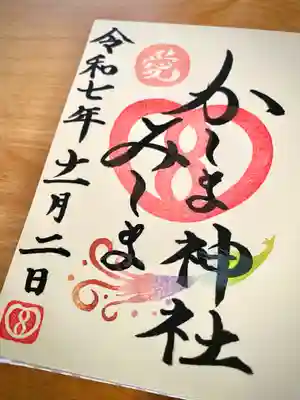 かしま神社
みしま
愛
8
令和七年十一月二日
8